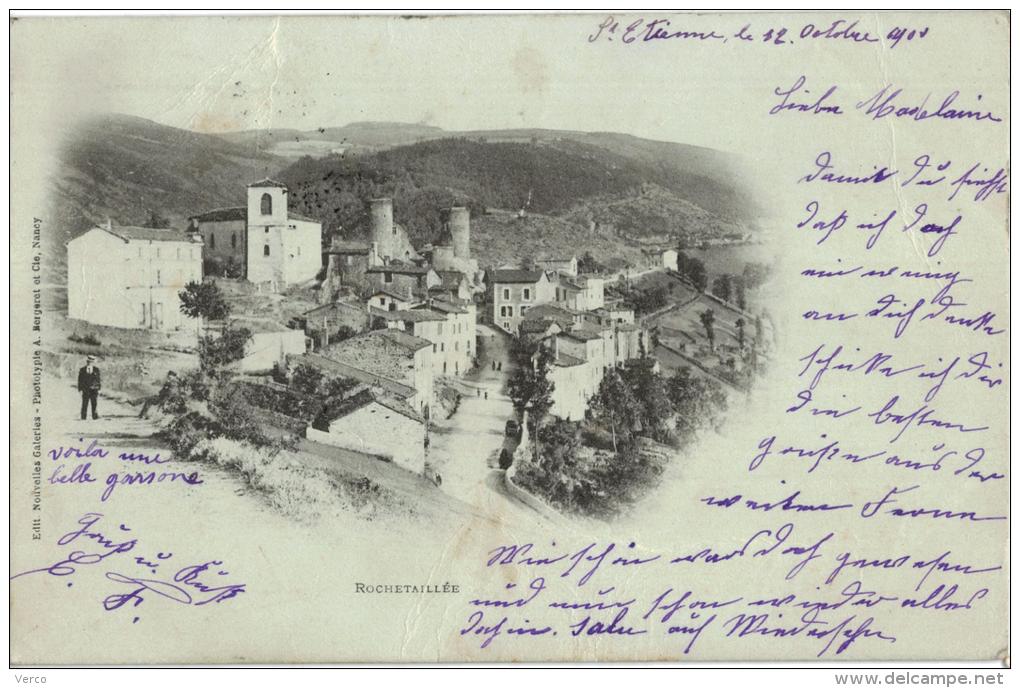 St. Etienne, le 12. Octobre 1901
Liebe Madelaine
damit Du siehst
daß ich doch
ein wenig
an dich denke
schicke ich dir
die besten
Grüßen aus der
weiten Ferne
Wie schön war's doch gewesen
und nun schon wieder alles
dahin. Salu auf Wiedersehn
voila une
belle garsone
Gruß u. Kuß
C. F.
ROCHETAILLÉE
Edit. Nouvelles Galeries - Phototypie A. Bergeret et Cie, Nancy
Verco
www.delcampe.net